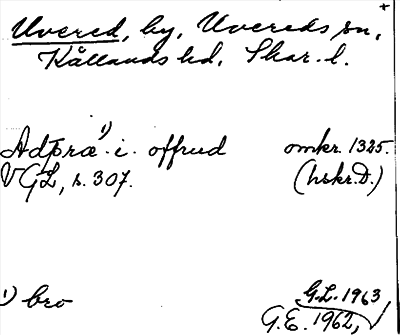 +
Uvered, by, Uvereds sn,
Kållands hd, Skar. l.
Adþræ¹⁾ i. offrud omkr. 1325.
VGL, s. 307. (hskr. D.)
¹⁾ bro G.L. 1963
G.E. 1962,